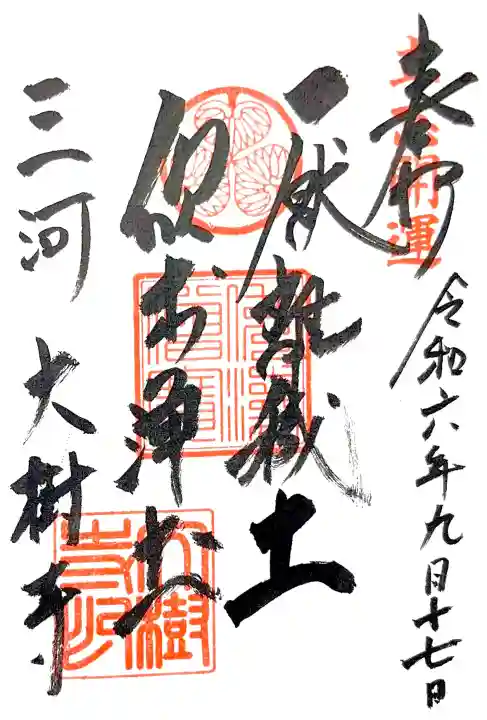 奉拝
開運
令和六年九月十七日
厭離穢土
欣求浄土
三河 大樹寺